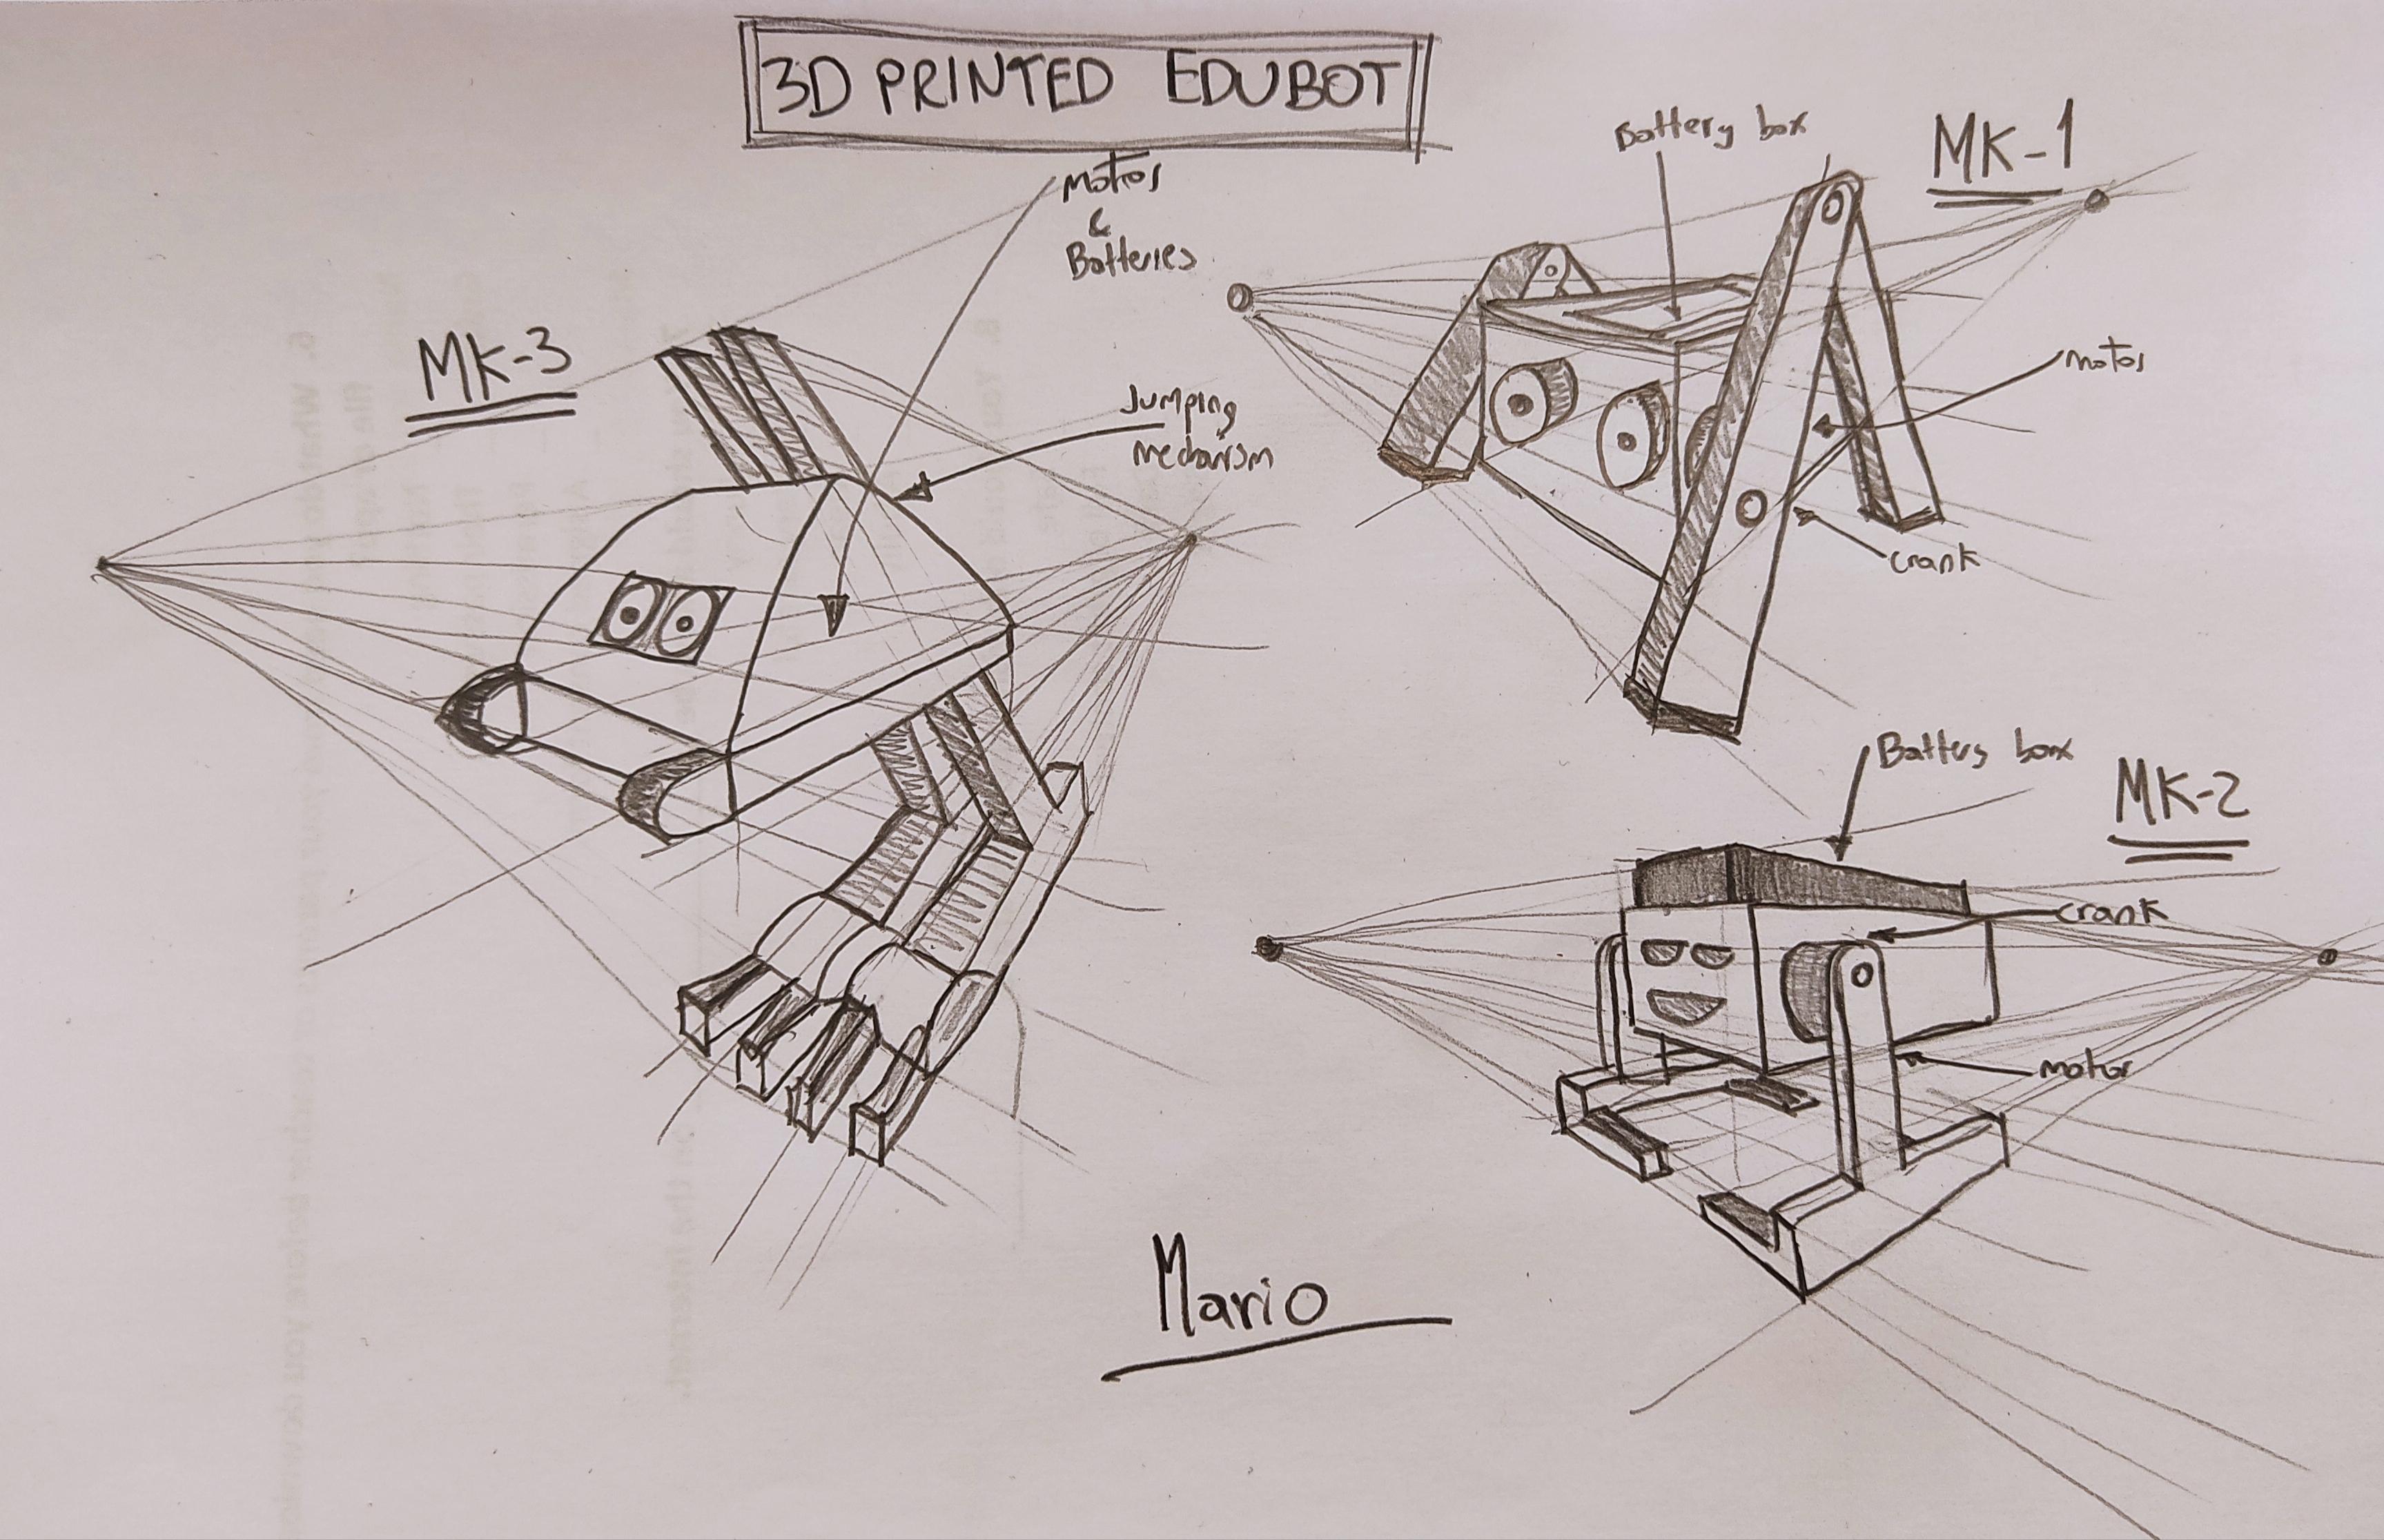 3D PRINTED EDUBOT
MK-3
Motor
&
Batteries
Jumping
mechanism
Battery box
MK-1
motor
crank
Battery box
MK-2
crank
motor
Mario